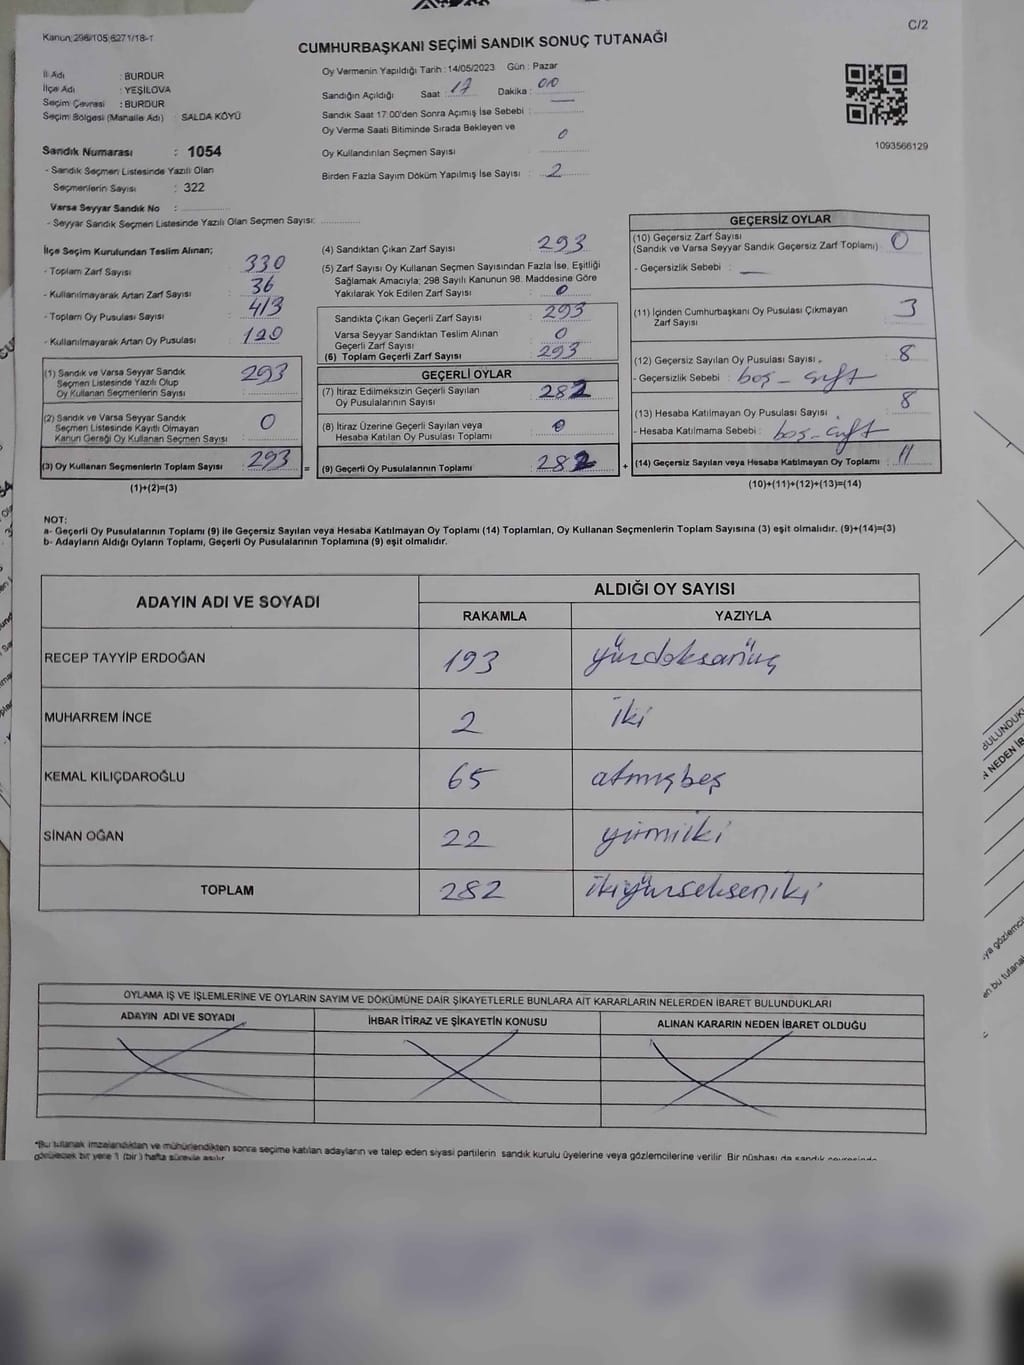 Kanun:298/105;6271/18-1
C/2
CUMHURBAŞKANI SEÇİMİ SANDIK SONUÇ TUTANAĞI
İl Adı : BURDUR
İlçe Adı : YEŞİLOVA
Seçim Çevresi : BURDUR
Seçim Bölgesi (Mahalle Adı) : SALDA KÖYÜ
Sandık Numarası : 1054
- Sandık Seçmen Listesinde Yazılı Olan
Seçmenlerin Sayısı : 322
Varsa Seyyar Sandık No :
- Seyyar Sandık Seçmen Listesinde Yazılı Olan Seçmen Sayısı:
Oy Vermenin Yapıldığı Tarih : 14/05/2023 Gün : Pazar
Sandığın Açıldığı Saat : 17 Dakika : 00
Sandık Saat 17:00'den Sonra Açımış İse Sebebi : —
Oy Verme Saati Bitiminde Sırada Bekleyen ve
Oy Kullandırılan Seçmen Sayısı : 0
Birden Fazla Sayım Döküm Yapılmış İse Sayısı : 2
1093566129
İlçe Seçim Kurulundan Teslim Alınan;
- Toplam Zarf Sayısı : 330
- Kullanılmayarak Artan Zarf Sayısı : 36
- Toplam Oy Pusulası Sayısı : 413
- Kullanılmayarak Artan Oy Pusulası : 120
(1) Sandık ve Varsa Seyyar Sandık
Seçmen Listesinde Yazılı Olup
Oy Kullanan Seçmenlerin Sayısı : 293
(2) Sandık ve Varsa Seyyar Sandık
Seçmen Listesinde Kayıtlı Olmayan
Kanun Gereği Oy Kullanan Seçmen Sayısı : 0
(3) Oy Kullanan Seçmenlerin Toplam Sayısı : 293 =
(1)+(2)=(3)
(4) Sandıktan Çıkan Zarf Sayısı : 293
(5) Zarf Sayısı Oy Kullanan Seçmen Sayısından Fazla İse, Eşitliği
Sağlamak Amacıyla; 298 Sayılı Kanunun 98. Maddesine Göre
Yakılarak Yok Edilen Zarf Sayısı : 0
Sandıkta Çıkan Geçerli Zarf Sayısı : 293
Varsa Seyyar Sandıktan Teslim Alınan
Geçerli Zarf Sayısı : 0
(6) Toplam Geçerli Zarf Sayısı : 293
GEÇERLİ OYLAR
(7) İtiraz Edilmeksizin Geçerli Sayılan
Oy Pusulalarının Sayısı : 282
(8) İtiraz Üzerine Geçerli Sayılan veya
Hesaba Katılan Oy Pusulası Toplamı : 0
(9) Geçerli Oy Pusulalarının Toplamı : 282 +
GEÇERSİZ OYLAR
(10) Geçersiz Zarf Sayısı
(Sandık ve Varsa Seyyar Sandık Geçersiz Zarf Toplamı) : 0
- Geçersizlik Sebebi : —
(11) İçinden Cumhurbaşkanı Oy Pusulası Çıkmayan
Zarf Sayısı : 3
(12) Geçersiz Sayılan Oy Pusulası Sayısı : 8
- Geçersizlik Sebebi : boş - çift
(13) Hesaba Katılmayan Oy Pusulası Sayısı : 8
- Hesaba Katılmama Sebebi : boş - çift
(14) Geçersiz Sayılan veya Hesaba Katılmayan Oy Toplamı : 11
(10)+(11)+(12)+(13)=(14)
NOT:
a- Geçerli Oy Pusulalarının Toplamı (9) ile Geçersiz Sayılan veya Hesaba Katılmayan Oy Toplamı (14) Toplamları, Oy Kullanan Seçmenlerin Toplam Sayısına (3) eşit olmalıdır. (9)+(14)=(3)
b- Adayların Aldığı Oyların Toplamı, Geçerli Oy Pusulalarının Toplamına (9) eşit olmalıdır.
ADAYIN ADI VE SOYADI
ALDIĞI OY SAYISI
RAKAMLA YAZIYLA
RECEP TAYYİP ERDOĞAN 193 yüzdoksanüç
MUHARREM İNCE 2 iki
KEMAL KILIÇDAROĞLU 65 atmışbeş
SİNAN OĞAN 22 yirmiiki
TOPLAM 282 ikiyürsekseniki
OYLAMA İŞ VE İŞLEMLERİNE VE OYLARIN SAYIM VE DÖKÜMÜNE DAİR ŞİKAYETLERLE BUNLARA AİT KARARLARIN NELERDEN İBARET BULUNDUKLARI
ADAYIN ADI VE SOYADI İHBAR İTİRAZ VE ŞİKAYETİN KONUSU ALINAN KARARIN NEDEN İBARET OLDUĞU
*Bu tutanak imzalandıktan ve mühürlendikten sonra seçime katılan adayların ve talep eden siyasi partilerin sandık kurulu üyelerine veya gözlemcilerine verilir. Bir nüshası da sandık çevresinde
görülecek bir yere 1 (bir) hafta süreyle asılır.